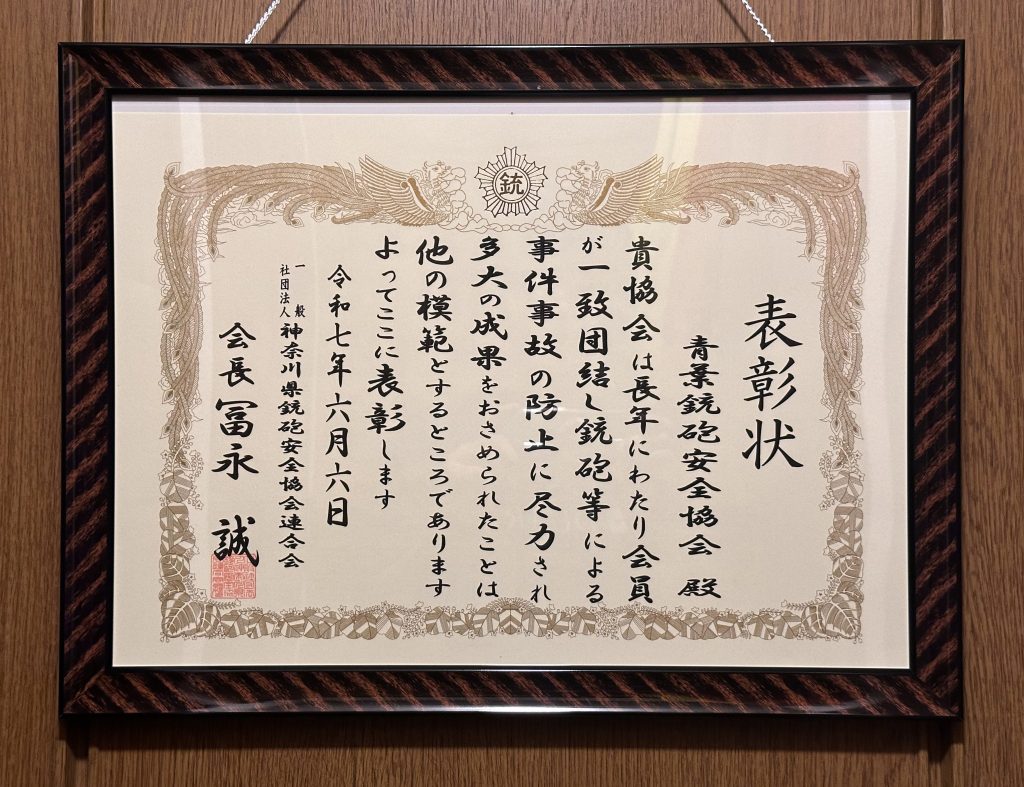 銃
表彰状
青葉銃砲安全協会 殿
貴協会は長年にわたり会員
が一致団結し銃砲等による
事件事故の防止に尽力され
多大の成果をおさめられたことは
他の模範とするところであります
よってここに表彰します
令和七年六月六日
一般社団法人 神奈川県銃砲安全協会連合会
会長 冨永 誠